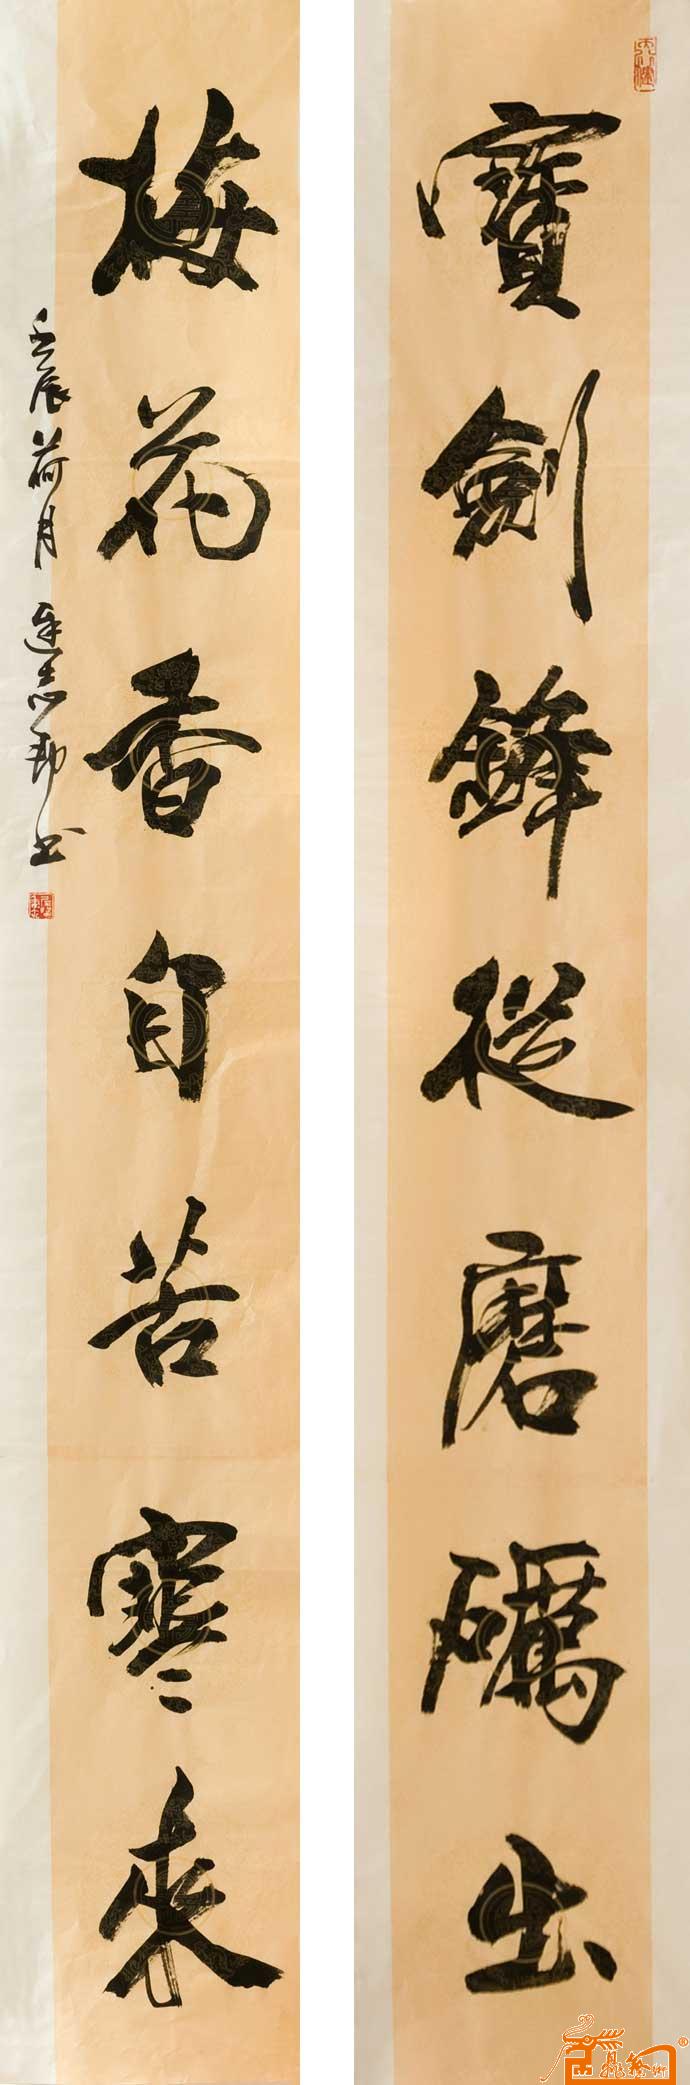 寶劍鋒從磨礪出
梅花香自苦寒來
壬辰荷月
志勤书